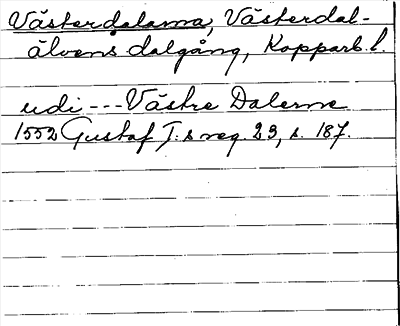 Västerdalarna, Västerdal-
älvens dalgång, Kopparb. l.
udi --- Västre Dalerne
1552 Gustaf I:s reg. 23, s. 187.